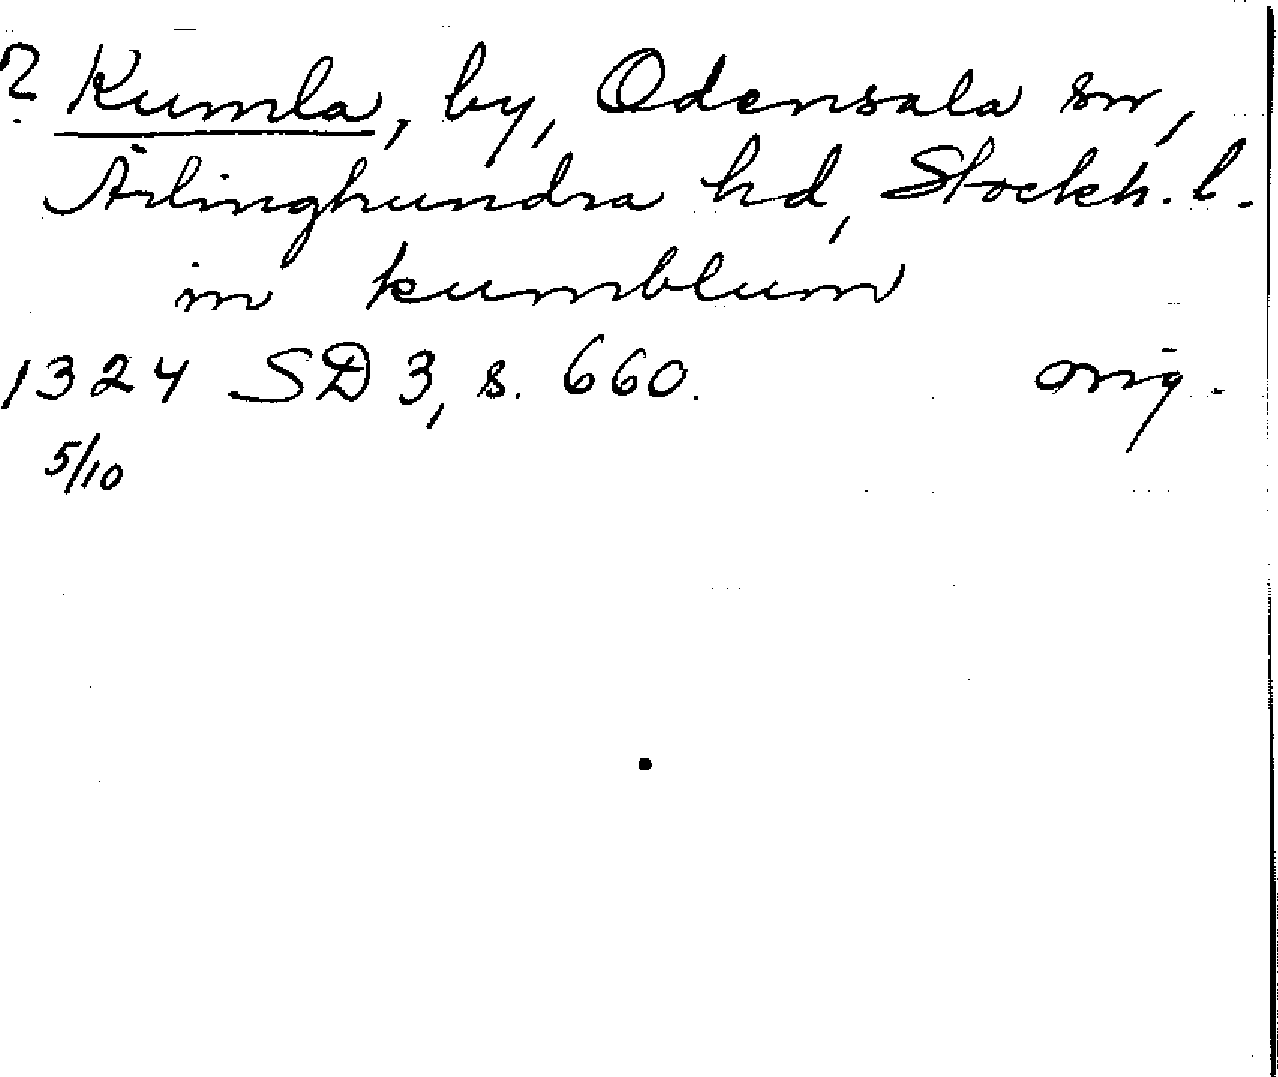 ? Kumla, by, Odensala sn,
Ärlinghundra hd, Stockh. l.
in kumblum
1324 SD 3, s. 660. orig.
5/10